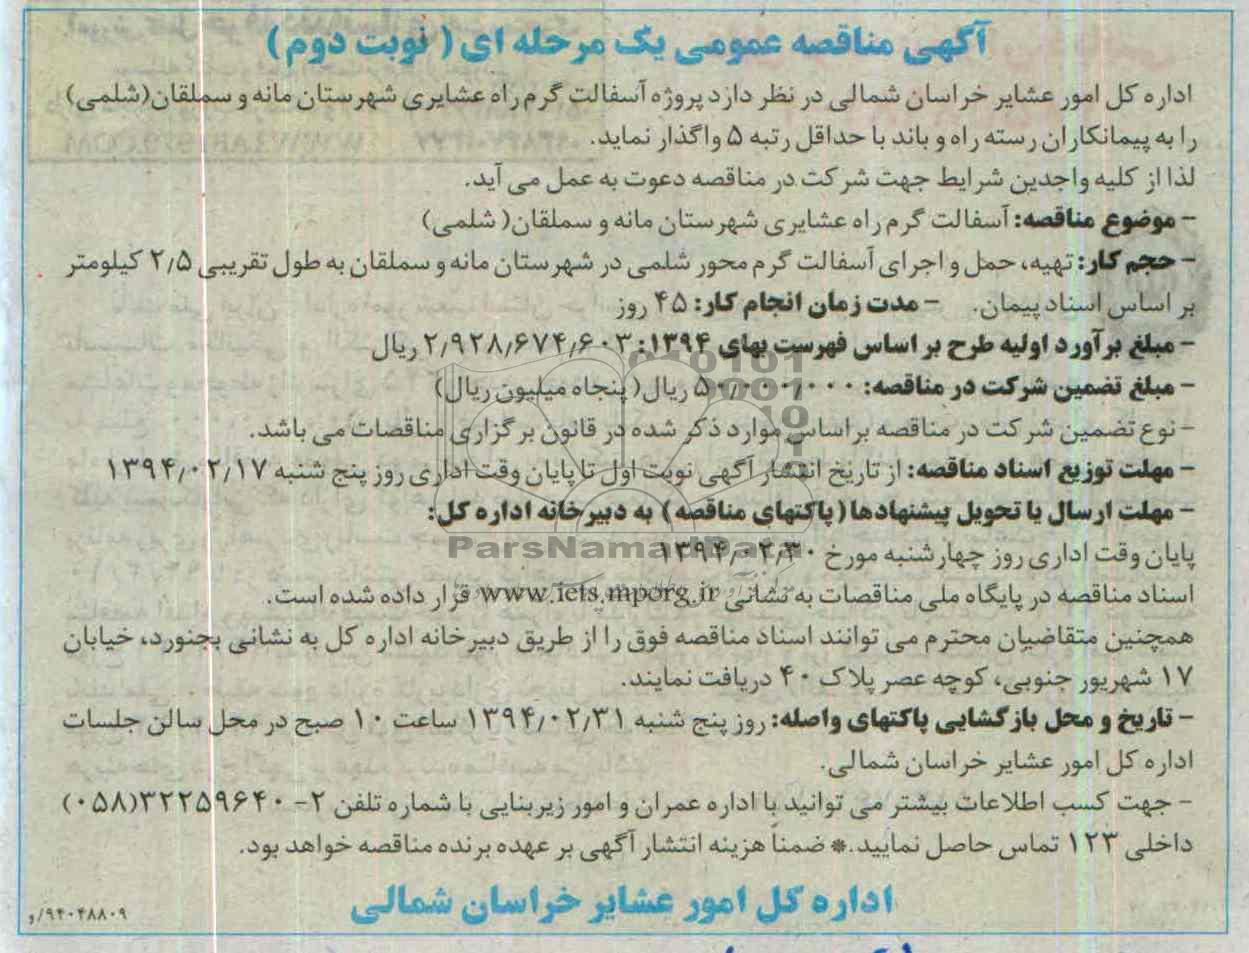 آگهی مناقصه عمومی یک مرحله ای ( نوبت دوم )
اداره کل امور عشایر خراسان شمالی در نظر دارد پروژه آسفالت گرم راه عشایری شهرستان مانه و سملقان(شلمی)
را به پیمانکاران رسته راه و باند با حداقل رتبه ۵ واگذار نماید.
لذا از کلیه واجدین شرایط جهت شرکت در مناقصه دعوت به عمل می آید.
- موضوع مناقصه: آسفالت گرم راه عشایری شهرستان مانه و سملقان( شلمی)
- حجم کار: تهیه، حمل و اجرای آسفالت گرم محور شلمی در شهرستان مانه و سملقان به طول تقریبی ۲/۵ کیلومتر
بر اساس اسناد پیمان. - مدت زمان انجام کار: ۴۵ روز
- مبلغ برآورد اولیه طرح بر اساس فهرست بهای ۱۳۹۴: ۲/۹۲۸/۶۷۴/۶۰۳ ریال
- مبلغ تضمین شرکت در مناقصه: ۵۰/۰۰۰/۰۰۰ ریال( پنجاه میلیون ریال)
- نوع تضمین شرکت در مناقصه براساس موارد ذکر شده در قانون برگزاری مناقصات می باشد.
- مهلت توزیع اسناد مناقصه: از تاریخ انتشار آگهی نوبت اول تا پایان وقت اداری روز پنج شنبه ۱۳۹۴/۰۲/۱۷
- مهلت ارسال یا تحویل پیشنهادها (پاکتهای مناقصه ) به دبیرخانه اداره کل:
پایان وقت اداری روز چهارشنبه مورخ ۱۳۹۴/۰۲/۳۰
ParsNamadData
اسناد مناقصه در پایگاه ملی مناقصات به نشانی www.iets.mporg.ir قرار داده شده است.
همچنین متقاضیان محترم می توانند اسناد مناقصه فوق را از طریق دبیرخانه اداره کل به نشانی بجنورد، خیابان
۱۷ شهریور جنوبی، کوچه عصر پلاک ۴۰ دریافت نمایند.
- تاریخ و محل بازگشایی پاکتهای واصله: روز پنج شنبه ۱۳۹۴/۰۲/۳۱ ساعت ۱۰ صبح در محل سالن جلسات
اداره کل امور عشایر خراسان شمالی.
- جهت کسب اطلاعات بیشتر می توانید با اداره عمران و امور زیربنایی با شماره تلفن ۲- ۳۲۲۵۹۶۴۰(۰۵۸)
داخلی ۱۲۳ تماس حاصل نمایید.* ضمناً هزینه انتشار آگهی بر عهده برنده مناقصه خواهد بود.
اداره کل امور عشایر خراسان شمالی
۹۴۰۴۸۸۰۹/و